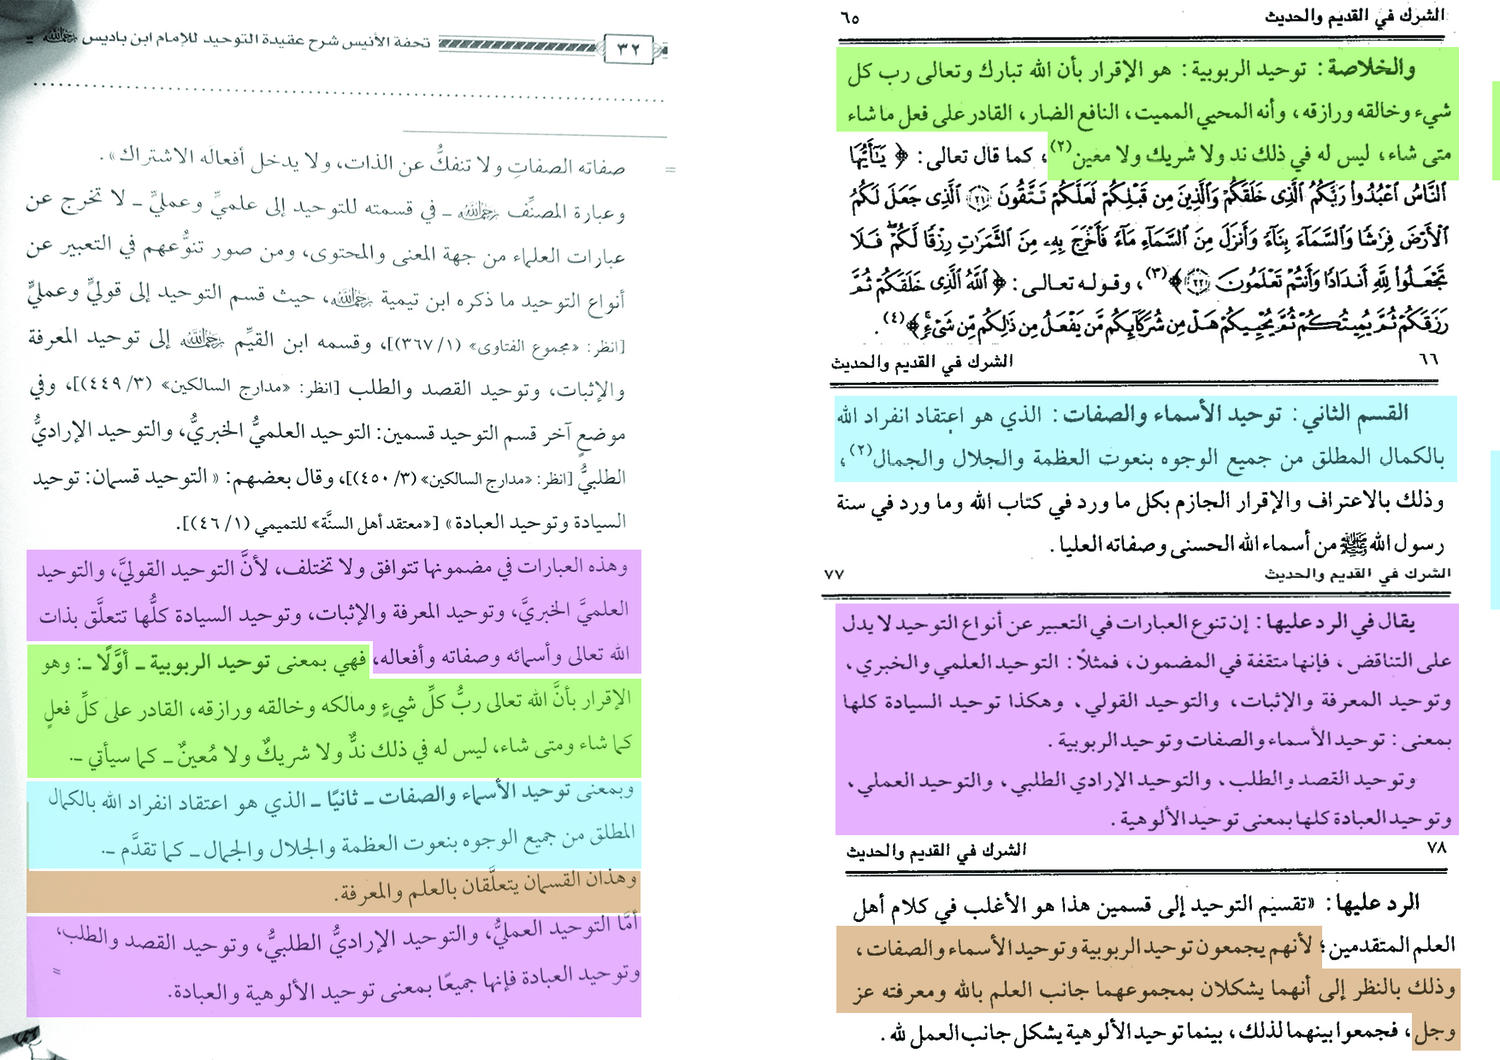 الشرك في القديم والحديث ٦٥
والخلاصة : توحيد الربوبية : هو الإقرار بأن الله تبارك وتعالى رب كل
شيء وخالقه ورازقه ، وأنه المحيي المميت ، النافع الضار ، القادر على فعل ما شاء
متى شاء ، ليس له في ذلك ند ولا شريك ولا معين(٢) ، كما قال تعالى : ﴿ يَٰٓأَيُّهَا
ٱلنَّاسُ ٱعۡبُدُواْ رَبَّكُمُ ٱلَّذِي خَلَقَكُمۡ وَٱلَّذِينَ مِن قَبۡلِكُمۡ لَعَلَّكُمۡ تَتَّقُونَ ٢١ ٱلَّذِي جَعَلَ لَكُمُ
ٱلۡأَرۡضَ فِرَٰشٗا وَٱلسَّمَآءَ بِنَآءٗ وَأَنزَلَ مِنَ ٱلسَّمَآءِ مَآءٗ فَأَخۡرَجَ بِهِۦ مِنَ ٱلثَّمَرَٰتِ رِزۡقٗا لَّكُمۡۖ فَلَا
تَجۡعَلُواْ لِلَّهِ أَندَادٗا وَأَنتُمۡ تَعۡلَمُونَ ٢٢ ﴾(٣) ، وقوله تعالى : ﴿ ٱللَّهُ ٱلَّذِي خَلَقَكُمۡ ثُمَّ
رَزَقَكُمۡ ثُمَّ يُمِيتُكُمۡ ثُمَّ يُحۡيِيكُمۡ هَلۡ مِن شُرَكَآئِكُم مَّن يَفۡعَلُ مِن ذَٰلِكُم مِّن شَيۡءٖۚ ﴾(٤) .
٦٦ الشرك في القديم والحديث
القسم الثاني : توحيد الأسماء والصفات : الذي هو اعتقاد انفراد الله
بالكمال المطلق من جميع الوجوه بنعوت العظمة والجلال والجمال(٢) ،
وذلك بالاعتراف والإقرار الجازم بكل ما ورد في كتاب الله وما ورد في سنة
رسول الله ﷺ من أسماء الله الحسنى وصفاته العليا .
الشرك في القديم والحديث ٧٧
يقال في الرد عليها : إن تنوع العبارات في التعبير عن أنواع التوحيد لا يدل
على التناقض ، فإنها متقفة في المضمون ، فمثلاً : التوحيد العلمي والخبري ،
وتوحيد المعرفة والإثبات ، والتوحيد القولي ، وهكذا توحيد السيادة كلها
بمعنى : توحيد الأسماء والصفات وتوحيد الربوبية .
وتوحيد القصد والطلب ، والتوحيد الإرادي الطلبي ، والتوحيد العملي ،
وتوحيد العبادة كلها بمعنى توحيد الألوهية .
٧٨ الشرك في القديم والحديث
الرد عليها : «تقسيم التوحيد إلى قسمين هذا هو الأغلب في كلام أهل
العلم المتقدمين ؛ لأنهم يجمعون توحيد الربوبية وتوحيد الأسماء والصفات ،
وذلك بالنظر إلى أنهما يشكلان بمجموعهما جانب العلم بالله ومعرفته عز
وجل ، فجمعوا بينهما لذلك ، بينما توحيد الألوهية يشكل جانب العمل لله .
٣٢ تحفة الأنيس شرح عقيدة التوحيد للإمام ابن باديس رحمه الله
= صفاته الصفاتِ ولا تنفكُّ عن الذات، ولا يدخل أفعاله الاشتراك».
وعبارة المصنِّف رحمه الله ـ في قسمته للتوحيد إلى علميٍّ وعمليٍّ ـ لا تخرج عن
عبارات العلماء من جهة المعنى والمحتوى، ومن صور تنوُّعهم في التعبير عن
أنواع التوحيد ما ذكره ابن تيمية رحمه الله، حيث قسم التوحيد إلى قوليٍّ وعمليٍّ
[انظر: «مجموع الفتاوى» (١/ ٣٦٧)]، وقسمه ابن القيِّم رحمه الله إلى توحيد المعرفة
والإثبات، وتوحيد القصد والطلب [انظر: «مدارج السالكين» (٣/ ٤٤٩)]، وفي
موضعٍ آخر قسم التوحيد قسمين: التوحيد العلميُّ الخبريُّ، والتوحيد الإراديُّ
الطلبيُّ [انظر: «مدارج السالكين» (٣/ ٤٥٠)]، وقال بعضهم: «التوحيد قسمان: توحيد
السيادة وتوحيد العبادة» [«معتقد أهل السنَّة» للتميمي (١/ ٤٦)].
وهذه العبارات في مضمونها تتوافق ولا تختلف، لأنَّ التوحيد القوليَّ، والتوحيد
العلميَّ الخبريَّ، وتوحيد المعرفة والإثبات، وتوحيد السيادة كلُّها تتعلَّق بذات
الله تعالى وأسمائه وصفاته وأفعاله، فهي بمعنى توحيد الربوبية ـ أوَّلًا ـ: وهو
الإقرار بأنَّ الله تعالى ربُّ كلِّ شيءٍ ومالكه وخالقه ورازقه، القادر على كلِّ فعلٍ
كما شاء ومتى شاء، ليس له في ذلك ندٌّ ولا شريكٌ ولا مُعينٌ ـ كما سيأتي ـ.
وبمعنى توحيد الأسماء والصفات ـ ثانيًا ـ الذي هو اعتقاد انفراد الله بالكمال
المطلق من جميع الوجوه بنعوت العظمة والجلال والجمال ـ كما تقدَّم ـ.
وهذان القسمان يتعلَّقان بالعلم والمعرفة.
أمَّا التوحيد العمليُّ، والتوحيد الإراديُّ الطلبيُّ، وتوحيد القصد والطلب،
وتوحيد العبادة فإنها جميعًا بمعنى توحيد الألوهية والعبادة. =